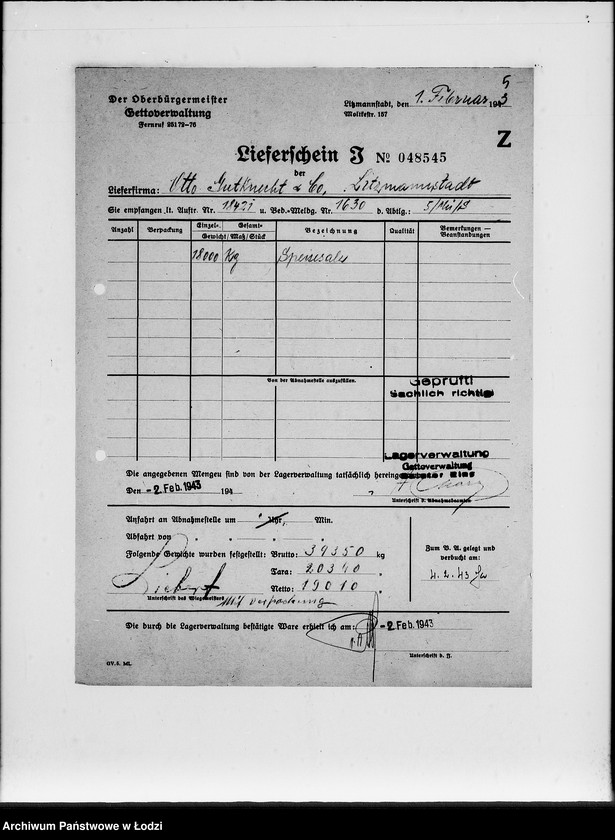 5
Der Oberbürgermeister
Gettoverwaltung
Fernruf 25172-76
Litzmannstadt, den 1. Februar 1943
Moltkestr. 157
Z
Lieferschein J № 048545
der
Lieferfirma: Otto Gutknecht & Co, Litzmannstadt
Sie empfangen lt. Auftr. Nr. u. Bed.-Meldg. Nr. 1630 d. Abtlg.:
Anzahl Verpackung Einzel- Gesamt- Gewicht/Maß/Stück Bezeichnung Qualität Bemerkungen — Beanstandungen
18000 Kg Speisesalz
Von der Abnahmestelle auszufüllen.
Geprüft!
Sachlich richtig
Lagerverwaltung
Gettoverwaltung
Die angegebenen Mengen sind von der Lagerverwaltung tatsächlich hereing
Den -2. Feb. 1943 194
Unterschrift d. Abnahmebeamten
Anfahrt an Abnahmestelle um Uhr, Min.
Abfahrt von
Folgende Gewichte wurden festgestellt: Brutto: 39350 kg
Tara: 20340 "
Netto: 19010 "
Zum B. A. gelegt und
verbucht am:
4. 2. 43
Unterschrift des Wiegemeisters
Mit Verpackung
Die durch die Lagerverwaltung bestätigte Ware erhielt ich am: -2. Feb. 1943
Unterschrift d. J.
GV. 5. Ml.
Archiwum Państwowe w Łodzi